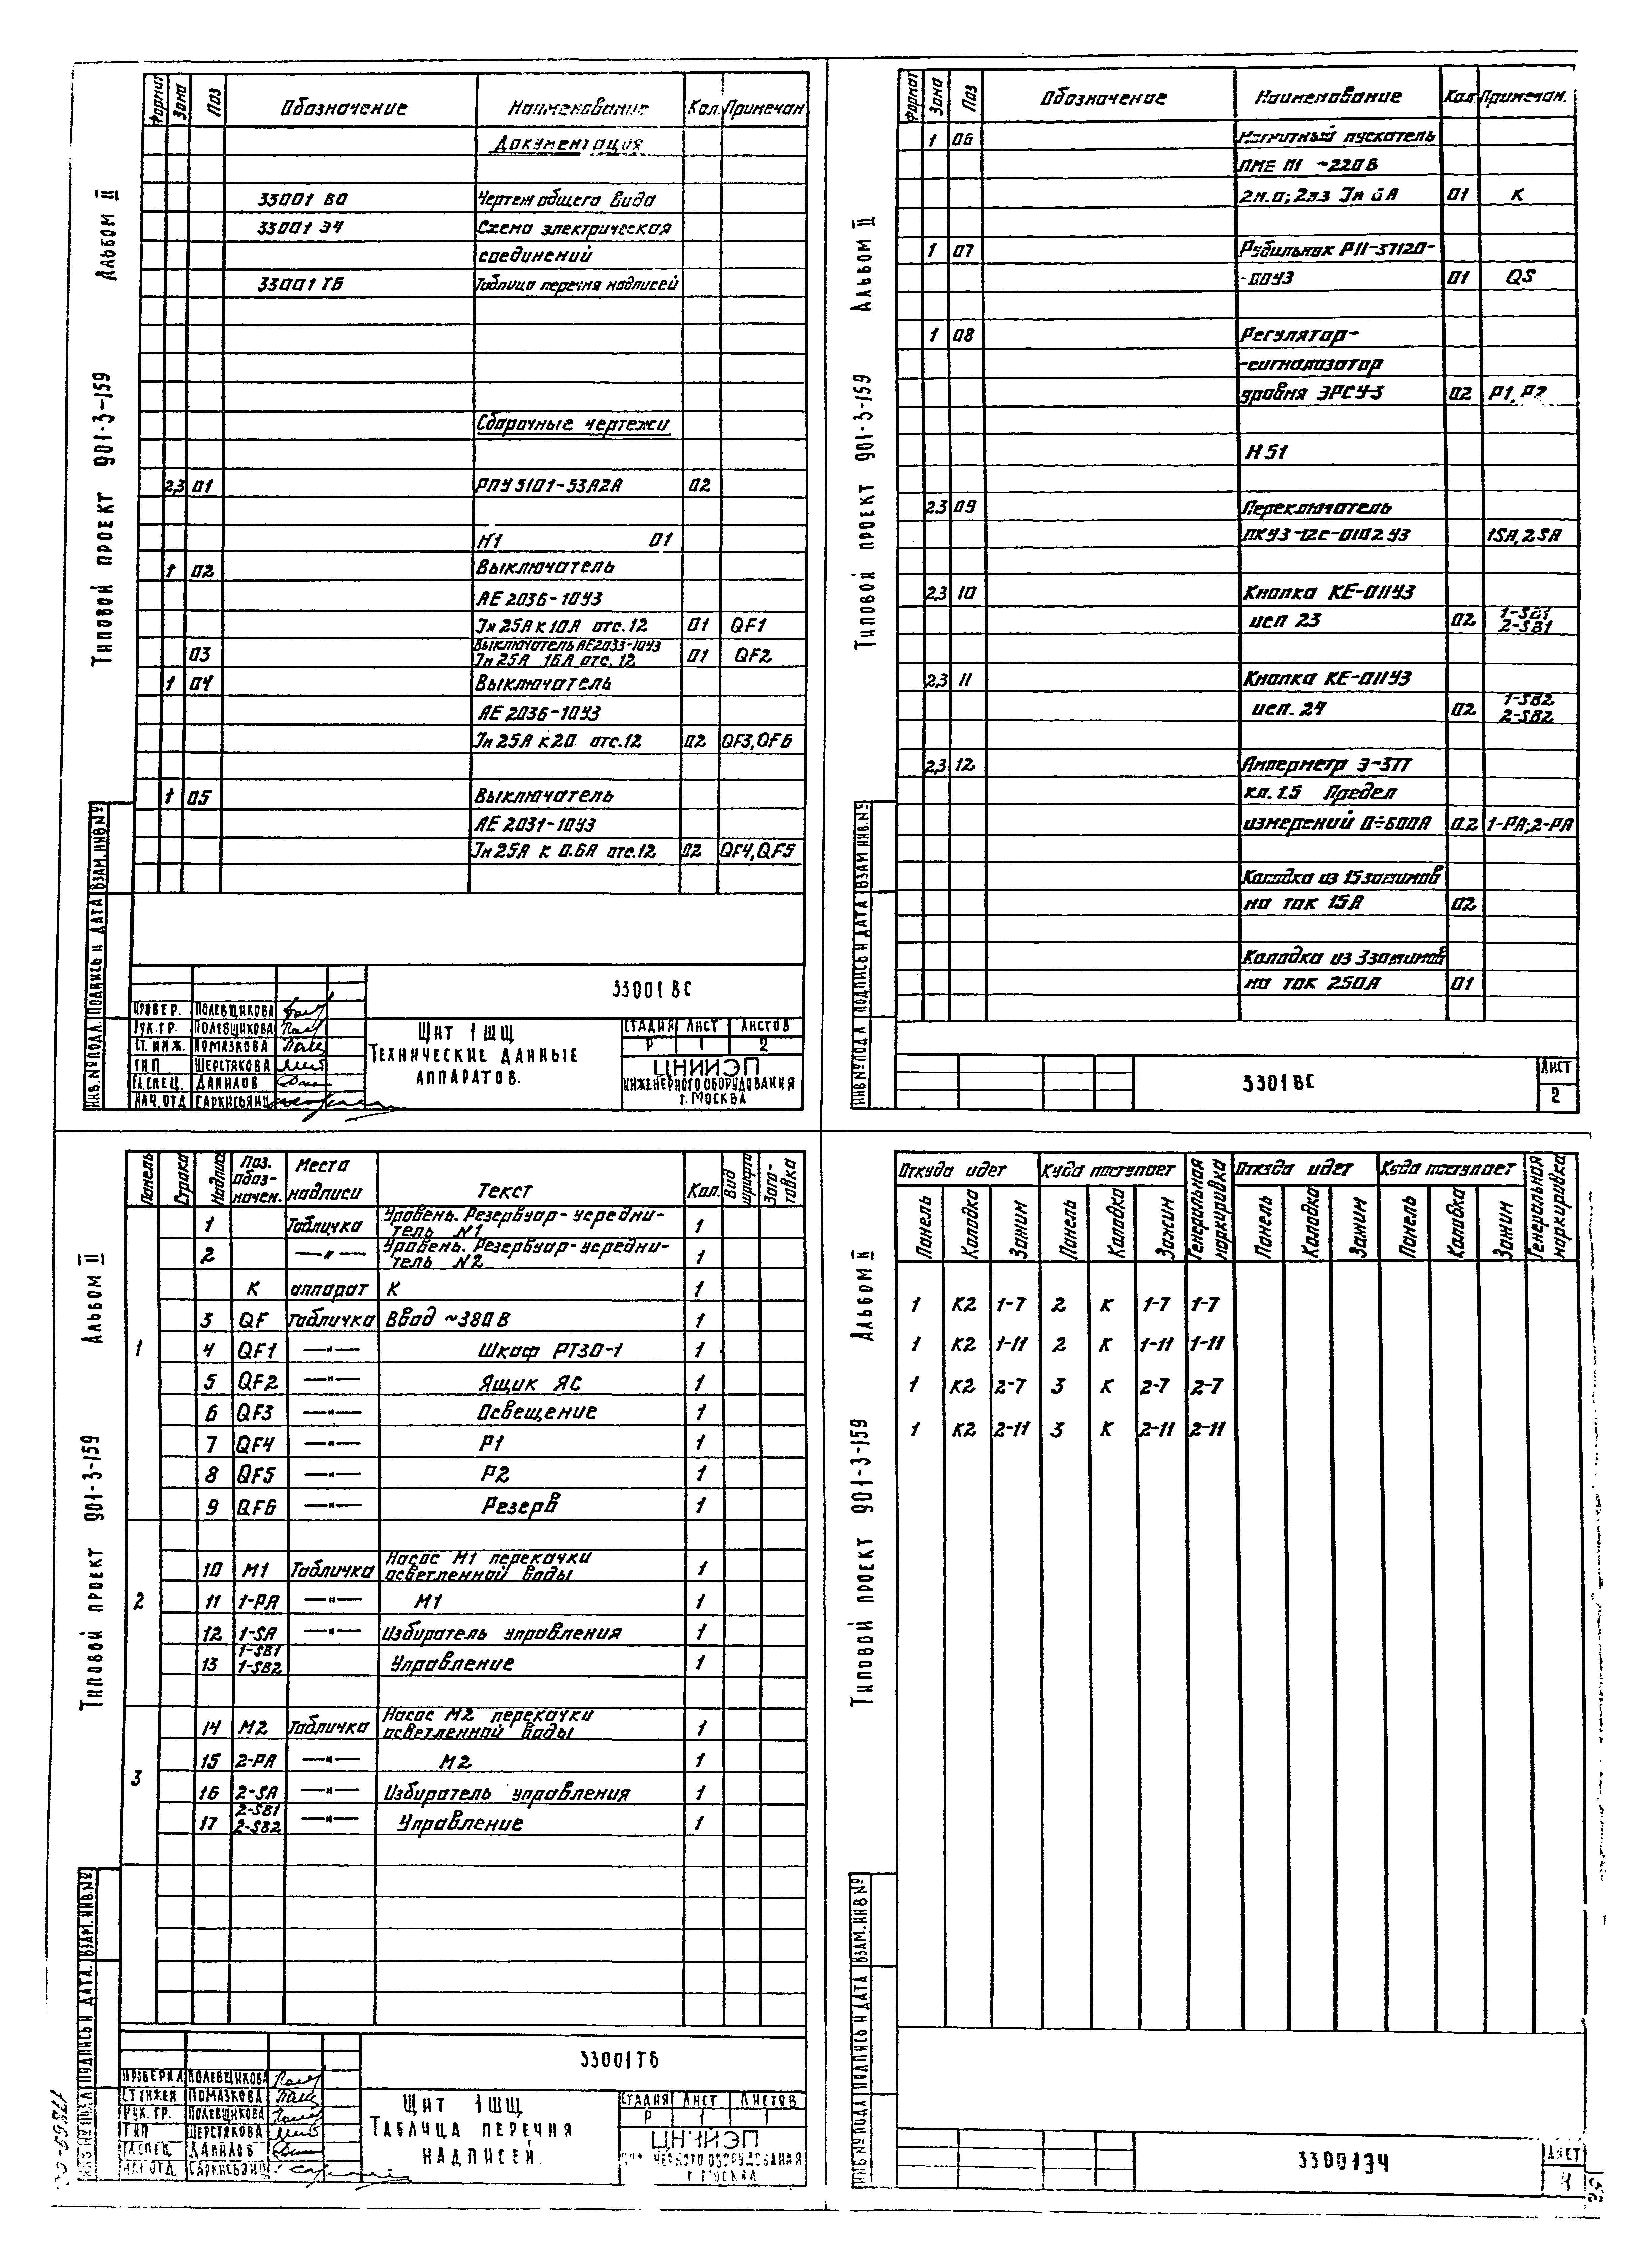 Альбом II
Типовой проект 901-3-159
Формат Зона Поз Обозначение Наименование Кол. Примечан
Документация
33001 ВО Чертеж общего вида
33001 Э4 Схема электрическая
соединений
33001 ТБ Таблица перечня надписей
Сборочные чертежи
2,3 01 РПУ5101-53А2А 02
Н1 01
1 02 Выключатель
АЕ 2036-10У3
Iн 25А к 10А отс. 12 01 QF1
03 Выключатель АЕ2033-10У3
Iн 25А 16А отс. 12 01 QF2
1 04 Выключатель
АЕ 2036-10У3
Iн 25А к 20. отс. 12 02 QF3, QF6
1 05 Выключатель
АЕ 2031-10У3
Iн 25А к 0.6А отс. 12 02 QF4, QF5
Инв. № подл. Подпись и дата Взам. инв. №
33001 ВС
Провер. Полевщикова
Рук. гр. Полевщикова
Ст. инж. Помазкова
ГИП Шерстякова
Гл. спец. Данилов
Нач. отд Саркисьянц
Щит 1ШЩ
Технические данные
аппаратов.
Стадия Лист Листов
Р 1 2
ЦНИИЭП
инженерного оборудования
г. Москва
Альбом II
Типовой проект 901-3-159
Формат Зона Поз Обозначение Наименование Кол. Примечан.
1 06 Магнитный пускатель
ПМЕ 111 ~220В
2н.о; 2н.з Iн 6А 01 К
1 07 Рубильник РП-37120-
-00У3 01 QS
1 08 Регулятор-
-сигнализатор
уровня ЭРСУ-3 02 Р1, Р2
Н51
2,3 09 Переключатель
ПКУ3-12С-0102 У3 1SA, 2SA
2,3 10 Кнопка КЕ-011У3
исп 23 02 1-SB1
2-SB1
2,3 11 Кнопка КЕ-011У3
исп. 24 02 1-SB2
2-SB2
2,3 12 Амперметр Э-377
кл. 1.5 Предел
измерений 0÷600А 02 1-РА; 2-РА
Колодка из 15 зажимов
на ток 15А 02
Колодка из 3 зажимов
на ток 250А 01
Инв № подл Подпись и дата Взам инв. №
3301 ВС
Лист
2
Альбом II
Типовой проект 901-3-159
Панель Строка Надпись Поз. обозначен. Места надписи Текст Кол. Вид шрифта Заготовка
1
1 Табличка Уровень. Резервуар-усредни-
тель N1 1
2 —"— Уровень. Резервуар-усредни-
тель N2 1
К аппарат К 1
3 QF Табличка Ввод ~380 В 1
4 QF1 —"— Шкаф РТ30-1 1
5 QF2 —"— Ящик ЯС 1
6 QF3 —"— Освещение 1
7 QF4 —"— Р1 1
8 QF5 —"— Р2 1
9 QF6 —"— Резерв 1
2
10 М1 Табличка Насос М1 перекачки
осветленной воды 1
11 1-РА —"— М1 1
12 1-SA —"— Избиратель управления 1
13 1-SB1
1-SB2 Управление 1
3
14 М2 Табличка Насос М2 перекачки
осветленной воды 1
15 2-РА —"— М2 1
16 2-SA —"— Избиратель управления 1
17 2-SB1
2-SB2 —"— Управление 1
Подпись и дата. Взам. инв. №
33001ТБ
Проверка Полевщикова
Ст инжен Помазкова
Рук. гр. Полевщикова
ГИП Шерстякова
Гл. спец. Данилов
Нач. отд Саркисьянц
Щит 1ШЩ
Таблица перечня
надписей.
Стадия Лист Листов
Р 1 1
ЦНИИЭП
инженерного оборудования
г. Москва
Альбом II
Типовой проект 901-3-159
Откуда идет Куда поступает Генеральная маркировка Откуда идет Куда поступает Генеральная маркировка
Панель Колодка Зажим Панель Колодка Зажим Панель Колодка Зажим Панель Колодка Зажим
1 К2 1-7 2 К 1-7 1-7
1 К2 1-11 2 К 1-11 1-11
1 К2 2-7 3 К 2-7 2-7
1 К2 2-11 3 К 2-11 2-11
Инв № подл Подпись и дата Взам. инв №
33001Э4
Лист
4